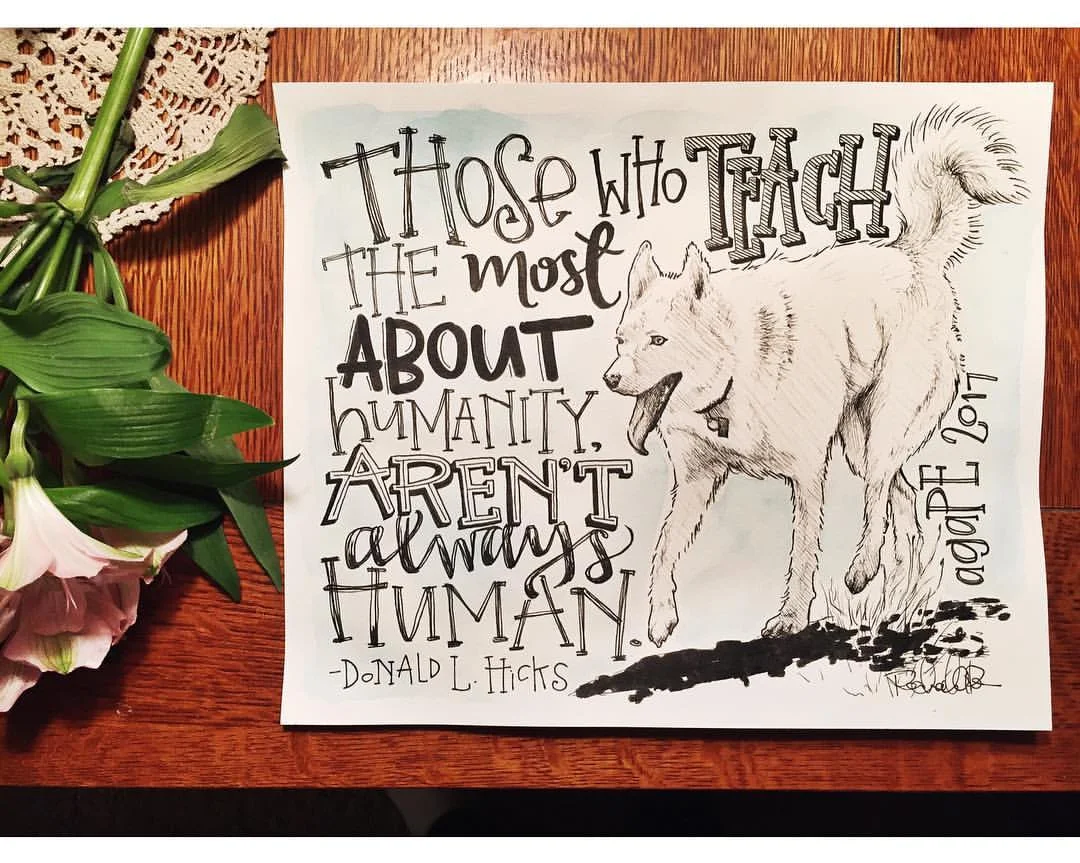 THOSe WHO TEAcH
THE most
ABOUT
hUMANITY,
AREN'T
always
HUMAN.
-DoNALD L. HicKS
agaPE 2017